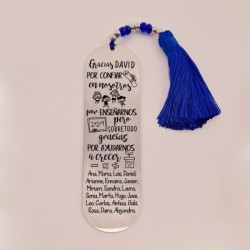 Gracias DAVID
POR CONFIAR
en nosotros
por ENSEÑARNOS
2+2=4
pero
SOBRETODO
gracias
POR AYUDARNOS
a crecer
Ana, Mario, Luis, Daniel,
Arianne, Ennaira, Javier,
Miriam, Sandra, Laura,
Sonia, Marta, Hugo, Jose,
Leo, Carlos, Ainhoa, Gala,
Rosa, Diana, Alejandra,